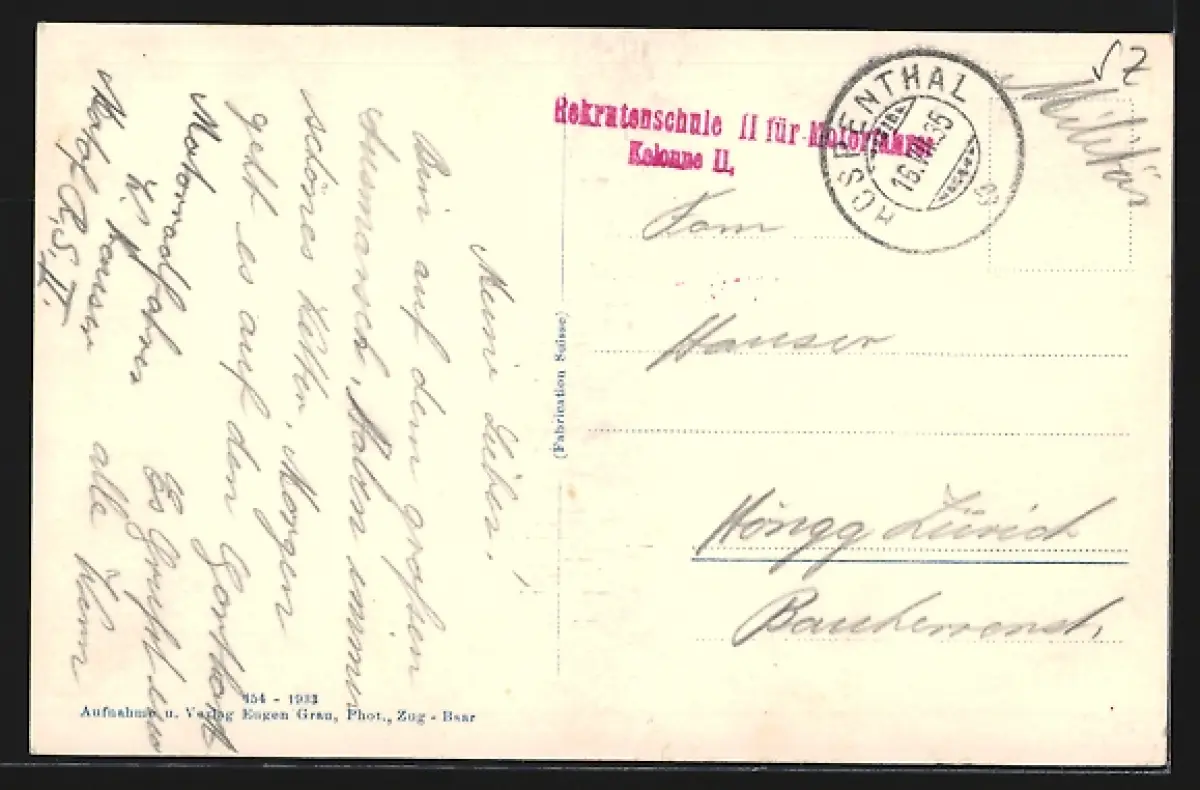 Meine Lieben!
Bin auf dem großen
Ausmarsch, Haben immer
schönes Wetter, Morgen
geht es auf den Gotthard
Motorradfahrer
W. Hauser Es Grüßt Euch
Motf. R.S. II. alle
454 - 1933
Aufnahme u. Verlag Eugen Grau, Phot., Zug - Baar
(Fabrication Suisse)
Rekrutenschule II für Motorfahrer
Kolonne II.
HOSPENTHAL
16.VII.35
SZ
Militär
Fam
Hauser
Höngg Zürich
Bauherrenst.